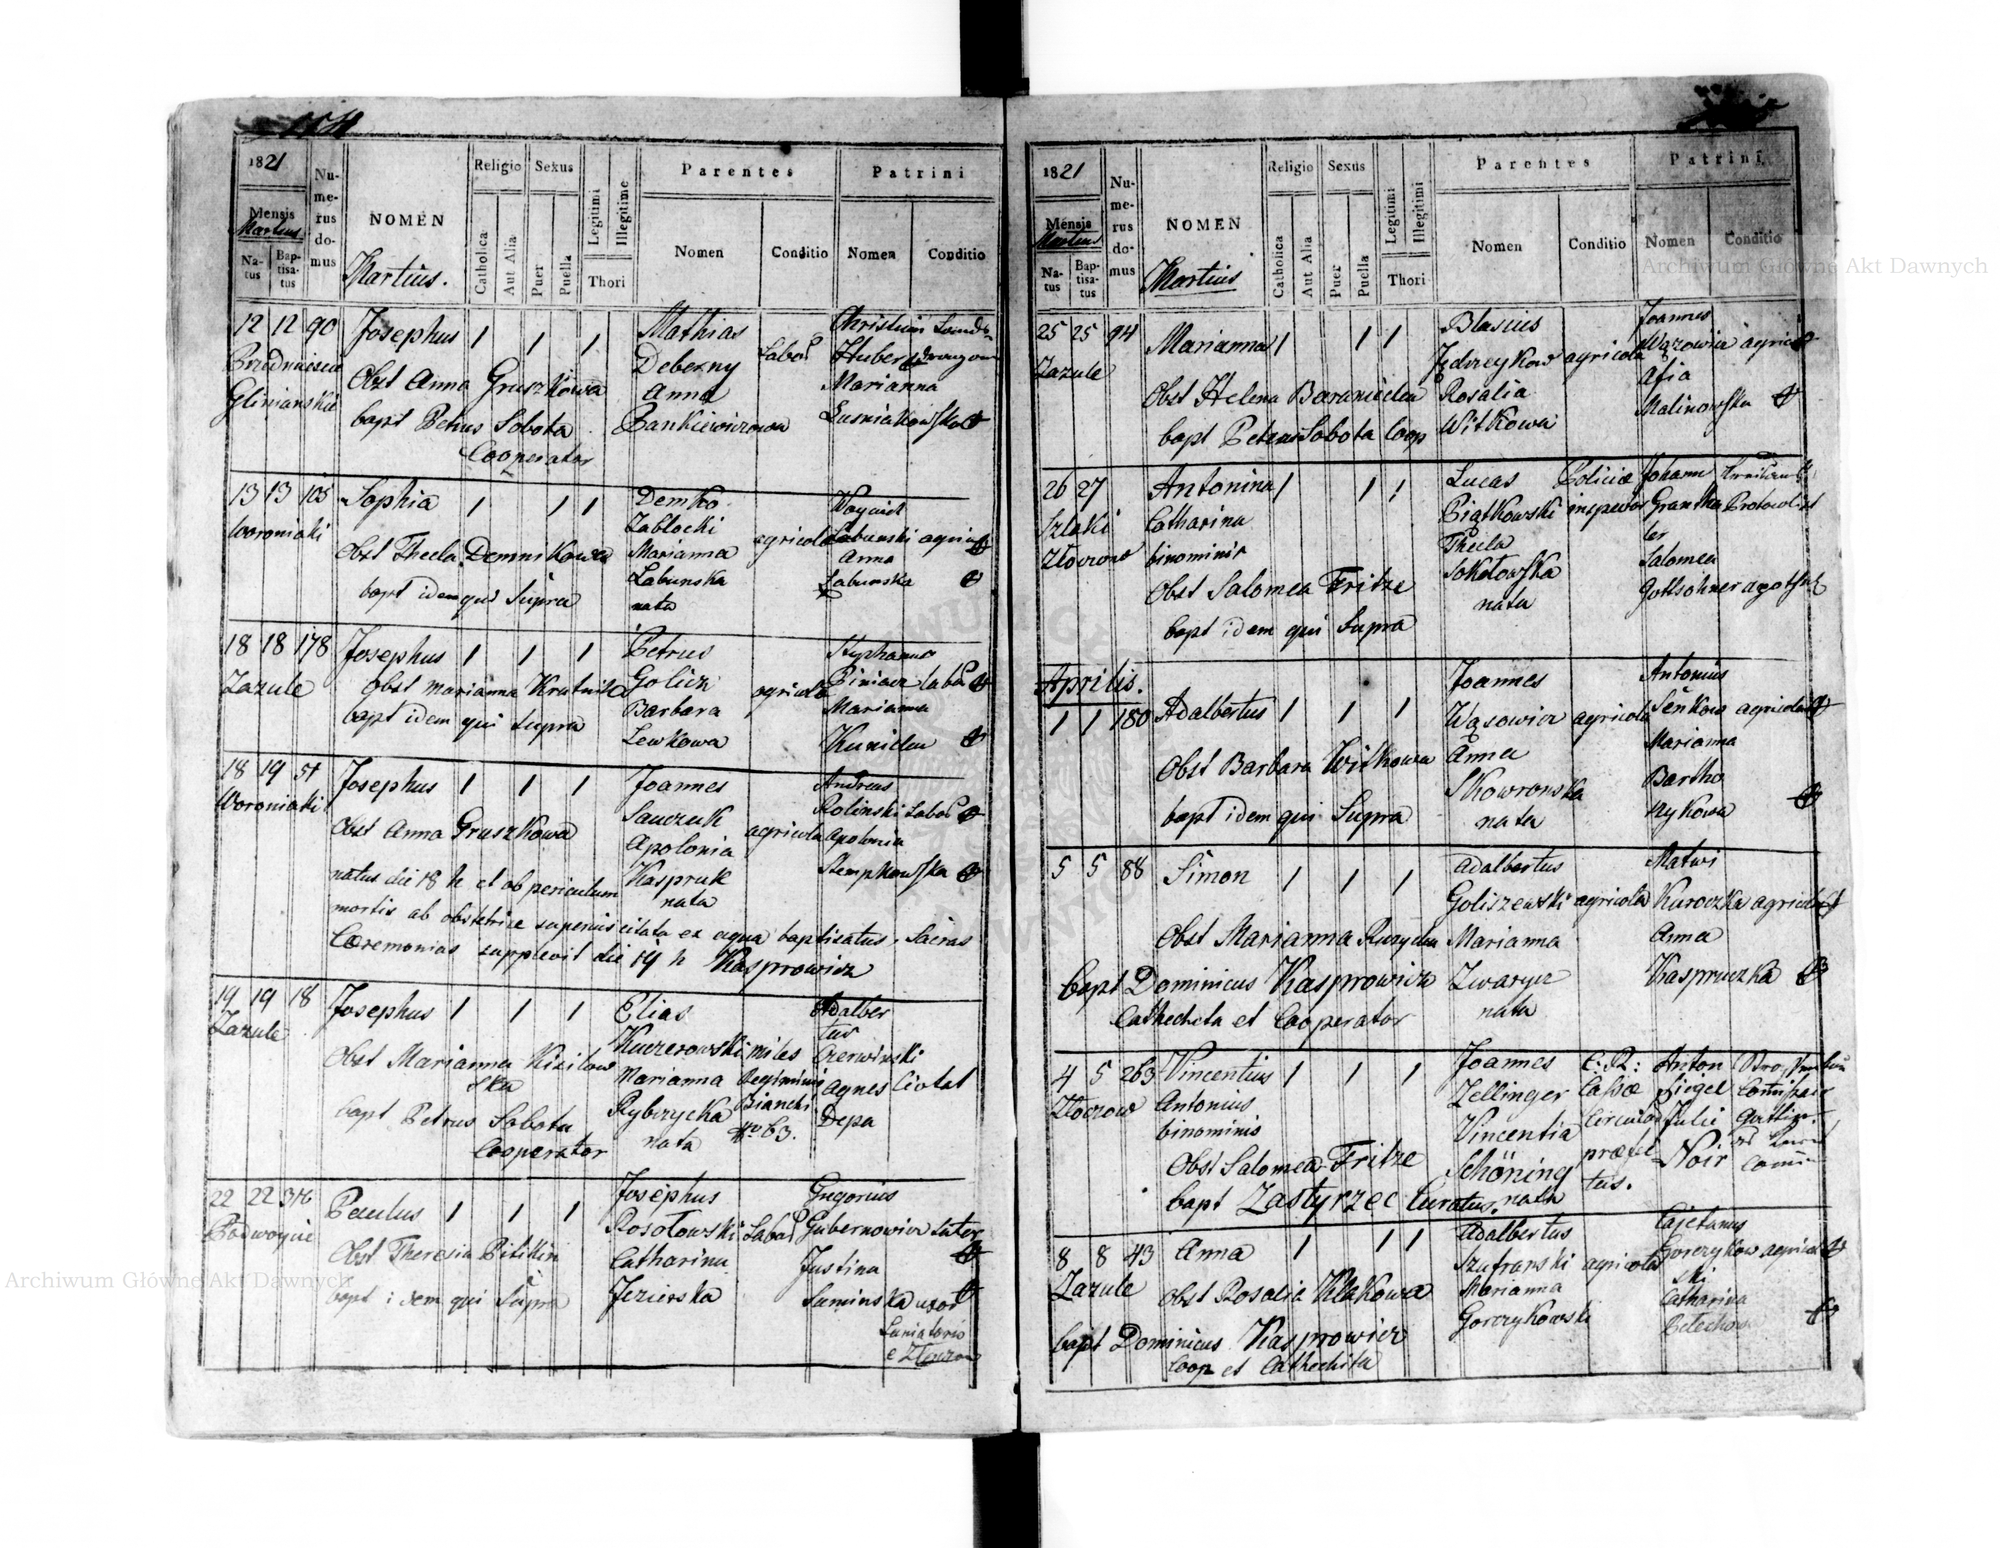 1821
Mensis
Martius
Na-
tus
Bap-
tisa-
tus
Nu-
me-
rus
do-
mus
NOMEN
Martius.
Religio
Catholica
Aut Alia
Sexus
Puer
Puella
Legitimi
Illegitime
Thori
Parentes
Nomen
Conditio
Patrini
Nomen
Conditio
12 12 90 Josephus 1 1 1
Glinianskie
Obst Anna Gruszkowa
bapt Petrus Sobota
Cooperator
Mathias
Debezny
Anna
Labor
Christian
Huber
Marianna
13 13 105 Sophia 1 1 1
Woroniaki
Obst Thecla Demnikowa
bapt idem qui Supra
Demko
Zablocki
Marianna
Labunska
nata
agricola
Woyciech
Labunski agricola
Anna
Labunska
18 18 178 Josephus 1 1 1
Zazule
Obst Marianna Krutnika
bapt idem qui Supra
Petrus
Golicz
Barbara
Lewkowa
agricola
Stephanus
Marianna
18 19 54 Josephus 1 1 1
Woroniaki
Obst Anna Gruszkowa
natus die 18 h et ob periculum
mortis ab obstetrice superius citata ex aqua baptisatus, Sacras
Ceremonias supplevit die 19 h Kasprowicz
Joannes
Sauczuk
Apolonia
Kaspruk
nata
agricola
Andreas
Rolinski Labor
Apolonia
Stempkowska
19 19 18 Josephus 1 1 1
Zazule
Obst Marianna Kizilow
ska
bapt Petrus Sobota
Cooperator
Elias
Kuczerowski
Marianna
Rybczycka
nata
miles
Regiminis
Bianchi
No 63.
Adalber
tus
Czerwinski
Agnes
Depa
22 22 316 Paulus 1 1 1
Podwoycie
Obst Theresia Pitikin
bapt idem qui Supra
Josephus
Rosołowski
Catharina
Jezierska
Labor
Gregorius
Gubernowicz Sutor
Justina
Suminska uxor
e Złoczow
1821
Mensis
Martius
Na-
tus
Bap-
tisa-
tus
Nu-
me-
rus
do-
mus
NOMEN
Martius.
Religio
Catholica
Aut Alia
Sexus
Puer
Puella
Legitimi
Illegitimi
Thori
Parentes
Nomen
Conditio
Patrini
Nomen
Conditio
25 25 94 Marianna 1 1 1
Zazule
Obst Helena
bapt Petrus Sobota Coop
Blasius
Jędrzeykow
Rosalia
Witkowa
agricola
Joannes
Wązowicz agricola
Afia
Malinowska
26 27 Antonina 1 1 1
Szlaki
Złoczow
Catharina
binominis
Obst Salomea Fritze
bapt idem qui Supra
Lucas
Piątkowski
Thecla
Sokołowska
nata
Policiæ
inspector
Johann
Protocolist
Salomea
Aprilis.
1 1 180 Adalbertus 1 1 1
Obst Barbara Witkowa
bapt idem qui Supra
Joannes
Wąsowicz
Anna
Skowronska
nata
agricola
Antonius
Senkow agricola
Marianna
Bartho
nykowa
5 5 88 Simon 1 1 1
Obst Marianna
bapt Dominicus Kasprowicz
Cathecheta et Cooperator
Adalbertus
Goliszewski
Marianna
Zwarycz
nata
agricola
Matwi
Kuroczka agricola
Anna
Kaspruczka
4 5 263 Vincentius 1 1 1
Złoczow
Antonius
binominis
Obst Salomea Fritze
bapt Zastyrzec Curatus.
Joannes
Zellinger
Vincentia
Schöning
nata
C: R:
Cassæ
Circular
præfec
tus.
Anton
Siegel
Julie
Noir
8 8 43 Anna 1 1 1
Zazule
Obst Rosalia Klakowa
bapt Dominicus Kasprowicz
Coop et Cathecheta
Adalbertus
Szufranski
Marianna
Gorczykowski
agricola
Cajetanus
Gorczykow agricola
ski
Catharina
Archiwum Główne Akt Dawnych
Archiwum Główne Akt Dawnych